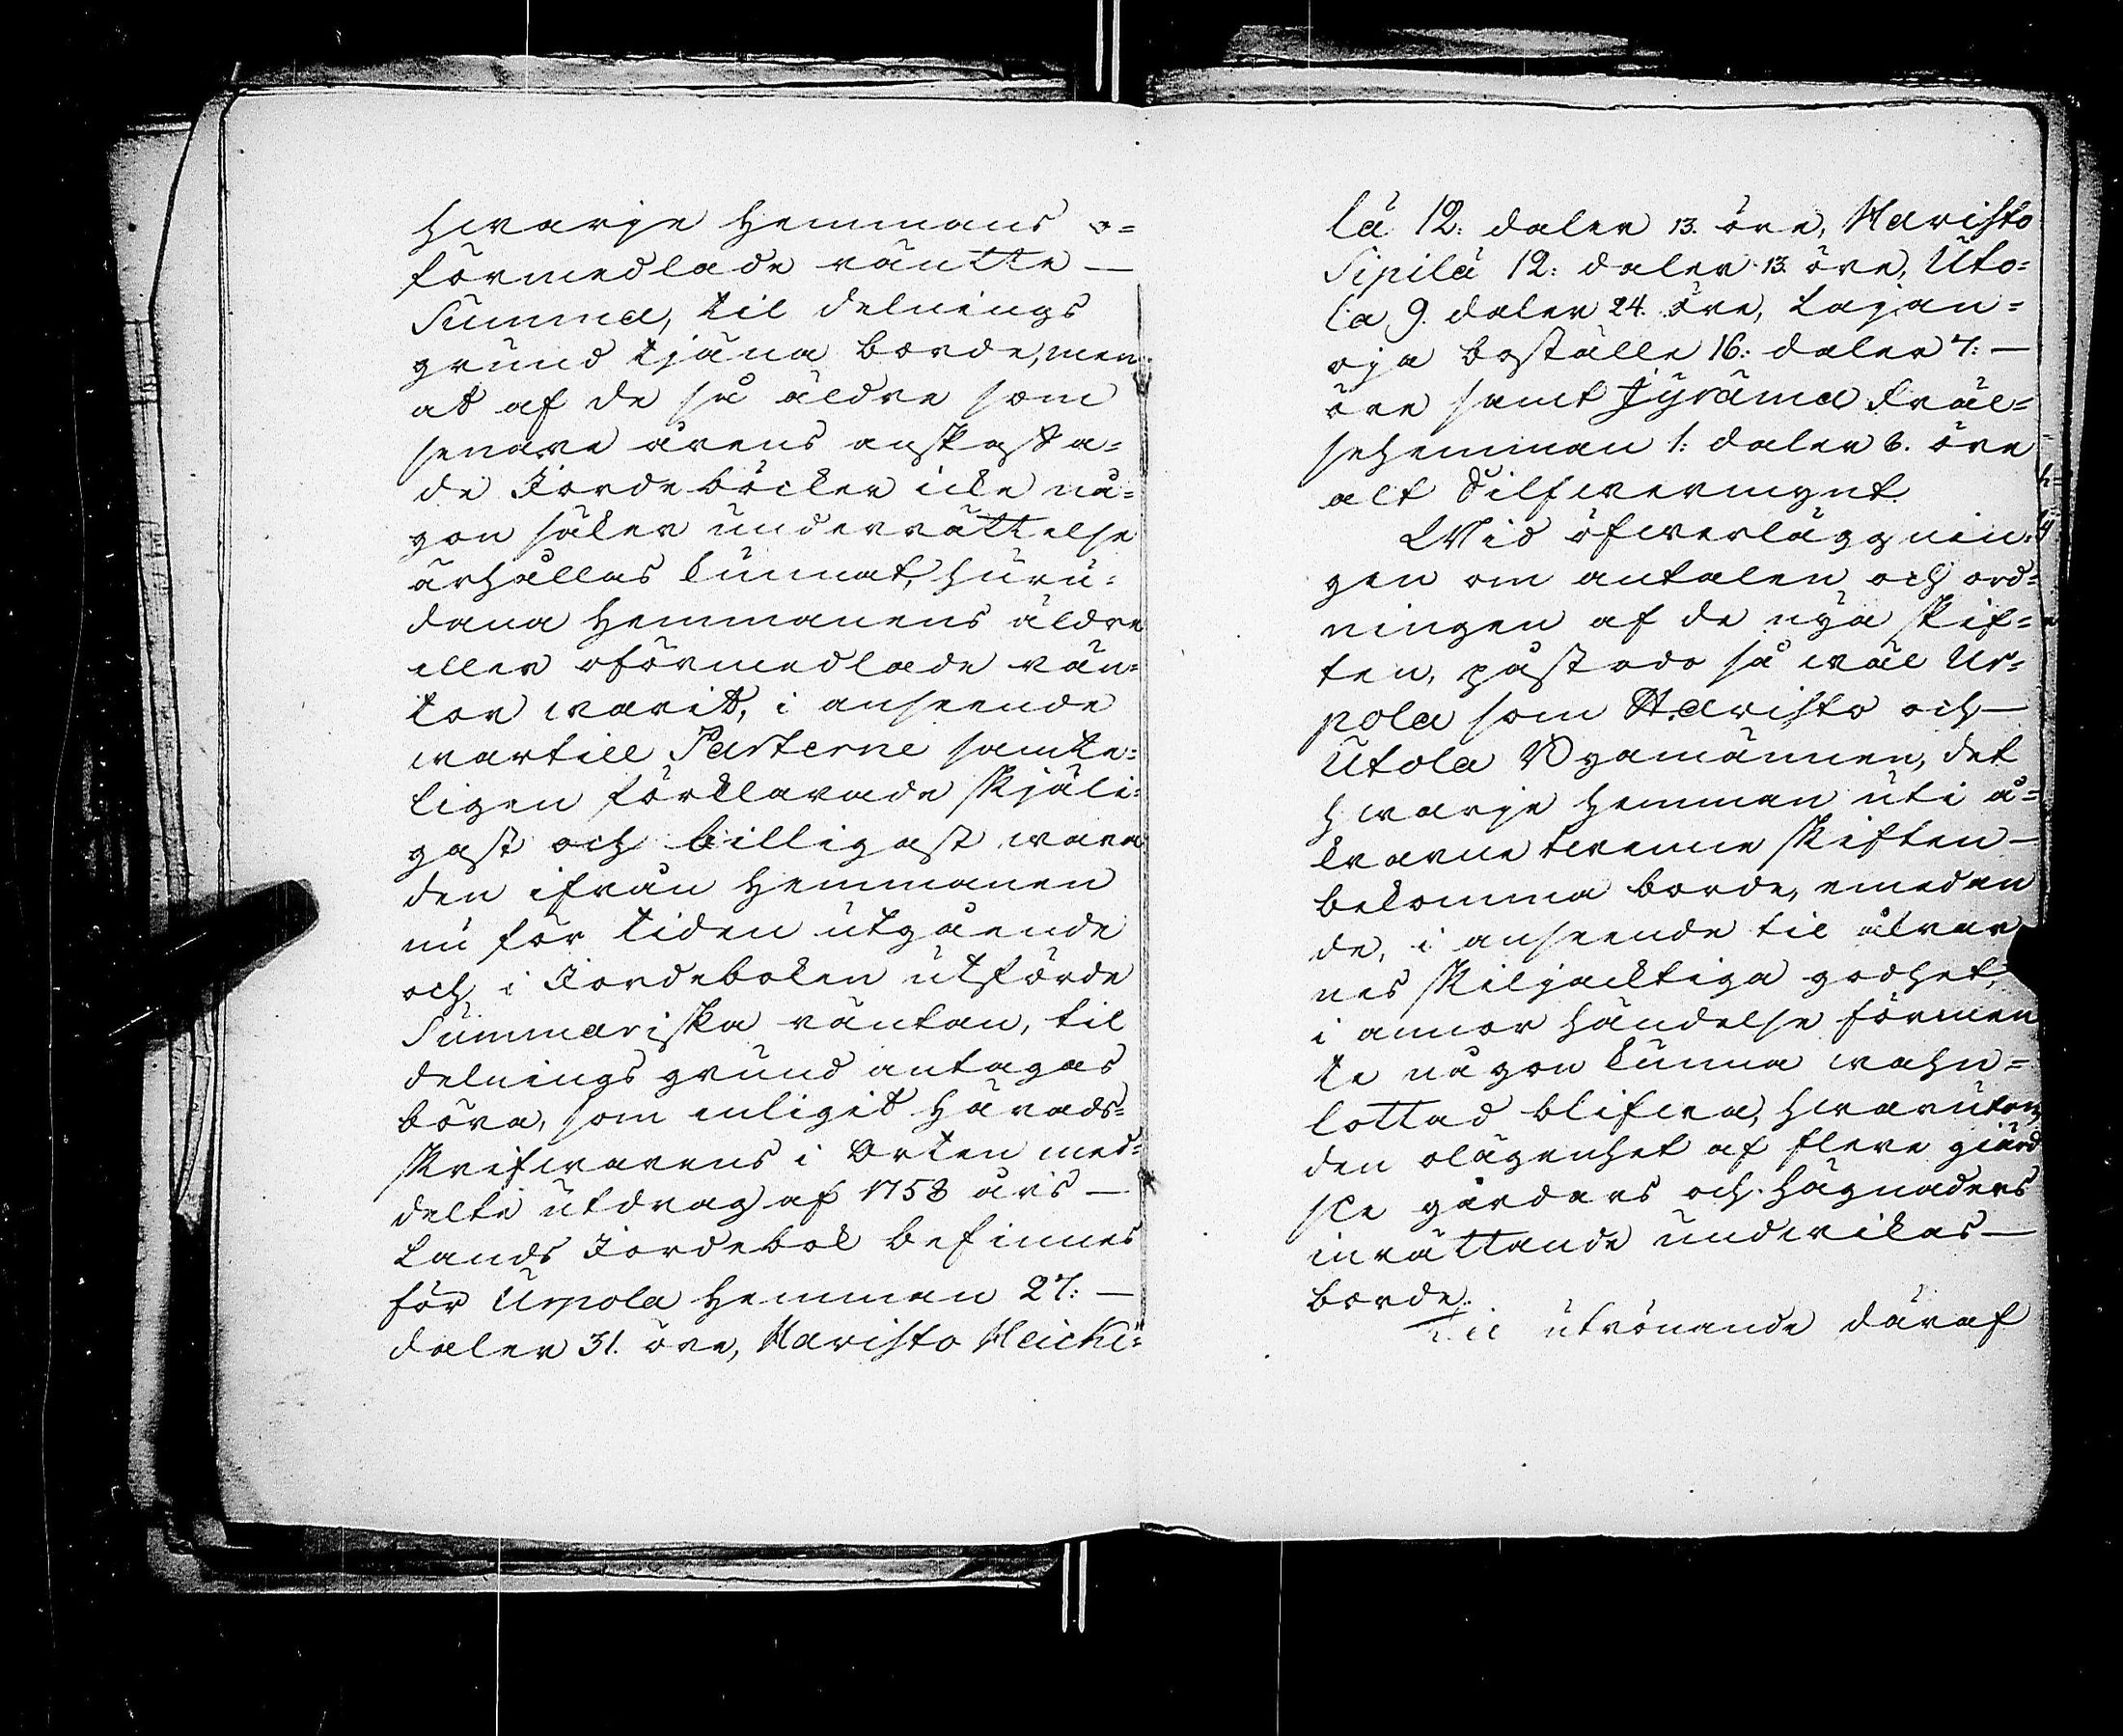 hwarje Hemmans o=
förmedlade räntte —
Summa, til delnings
grund tjäna borde, men
at af de så äldre som
senare årens anskafta=
de Jordeböcker icke nå=
gon säker underrättelse
ärhållas kunnat, huru=
dana Hemmanens äldre
eller oförmedlade rän=
tor warit, i anseende
wartill Parterne samte=
ligen förklarade skjäli=
gast och billigast wara
den ifrån Hemmanen
nu för tiden utgående
och i Jordeboken utförde
Summariska räntan, til
delnings grund antagas
böra, som enligit Härads=
skrifwarens i Orten med=
delte utdrag af 1758 års —
Lands Jordebok befinnes
för Urpola Hemman 27: —
daler 31. öre, Haristo Heicki=
lä 12: daler 13. öre, Haristo
Sipilä 12: daler 13 öre, Uto=
la 9. daler 24. öre, Lajan=
oja boställe 16: daler 7: —
öre samt Jyräma Fräl=
sehemman 1: daler 6. öre
alt Silfwermynt.
Wid öfwerläggnin=
gen om antalen och ord=
ningen af de nya skif=
ten, påstodo så wäl Ur=
pola som Haristo och —
Utola Byamännen, det
hwarje Hemman uti å=
krarne twenne skiften —
bekomma borde, emedan
de, i anseende til åkrar
nes skiljacktiga godhet,
i annor händelse förmen
te någon kunna wahn=
lottad blifwa, hwarutom
den olägenhet af flere giärd
sle gårdars och hägnaders
inrättande undwikas —
borde.
Til utrönande däraf